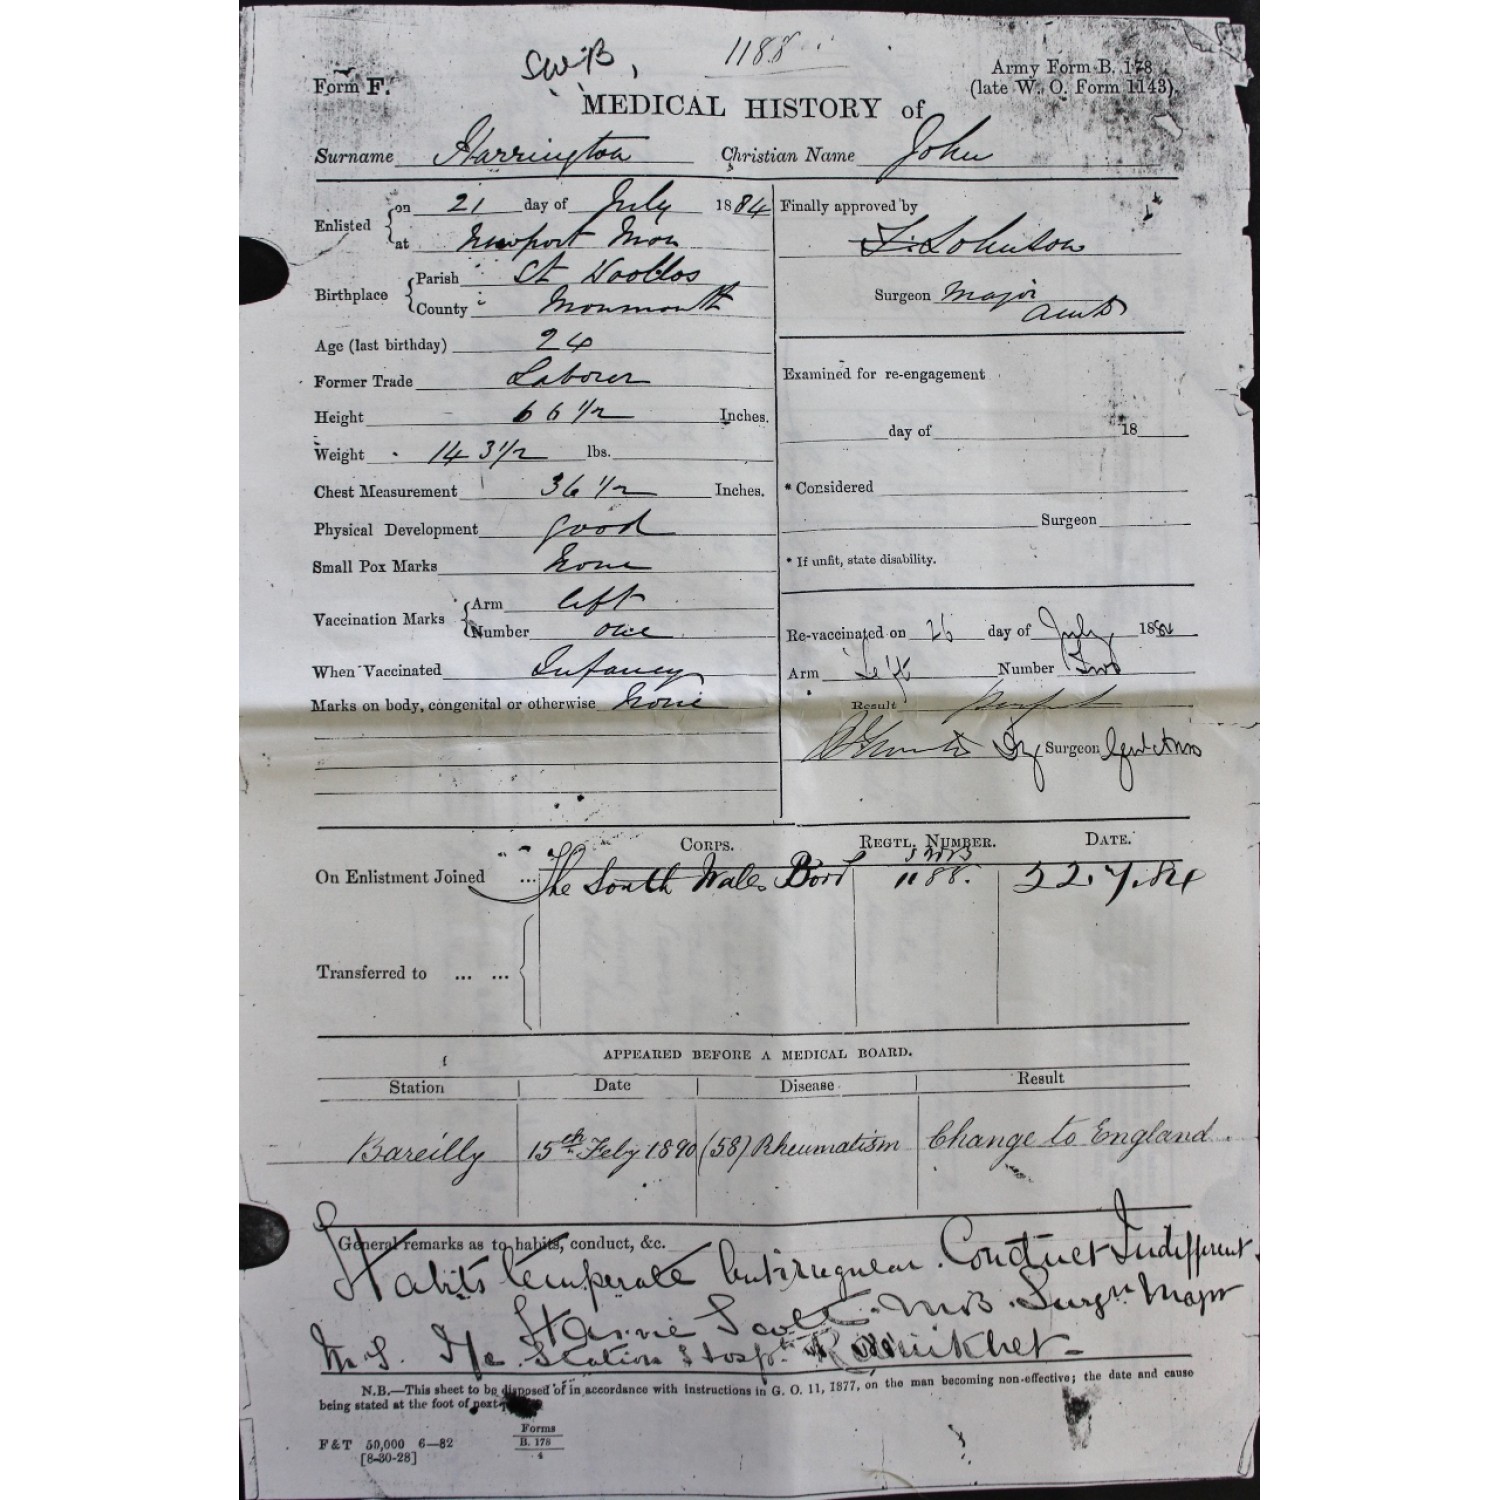 SWB, 1188
Form F.
Army Form B. 178
(late W. O. Form 1143).
MEDICAL HISTORY of
Surname Harrington Christian Name John
Enlisted on 21 day of July 1884
at Newport Mon
Birthplace Parish St Woollos
County Monmouth
Age (last birthday) 24
Former Trade Laborer
Height 66 1/2 Inches.
Weight 143 1/2 lbs.
Chest Measurement 36 1/2 Inches.
Physical Development good
Small Pox Marks None
Vaccination Marks Arm left
Number one
When Vaccinated Infancy
Marks on body, congenital or otherwise None
Finally approved by
Johnson
Surgeon Major
Examined for re-engagement
day of 18
* Considered
Surgeon
* If unfit, state disability.
Re-vaccinated on 26 day of July, 1884
Arm left Number Two
Result Perfect
Surgeon
CORPS. REGTL. NUMBER. DATE.
On Enlistment Joined ... The South Wales Bord 1188. 22.7.84
Transferred to ... ...
APPEARED BEFORE A MEDICAL BOARD.
Station Date Disease Result
Bareilly 15th Feby 1890 (58) Rheumatism Change to England.
General remarks as to habits, conduct, &c.
Habits temperate but irregular. Conduct Indifferent.
Scott. MB. Surgn Major
M.S. I/c Station Hospl. Ranikhet
N.B.—This sheet to be disposed of in accordance with instructions in G. O. 11, 1877, on the man becoming non-effective; the date and cause
being stated at the foot of next
F & T 50,000 6—82
[8-30-28]
Forms
B. 178
4